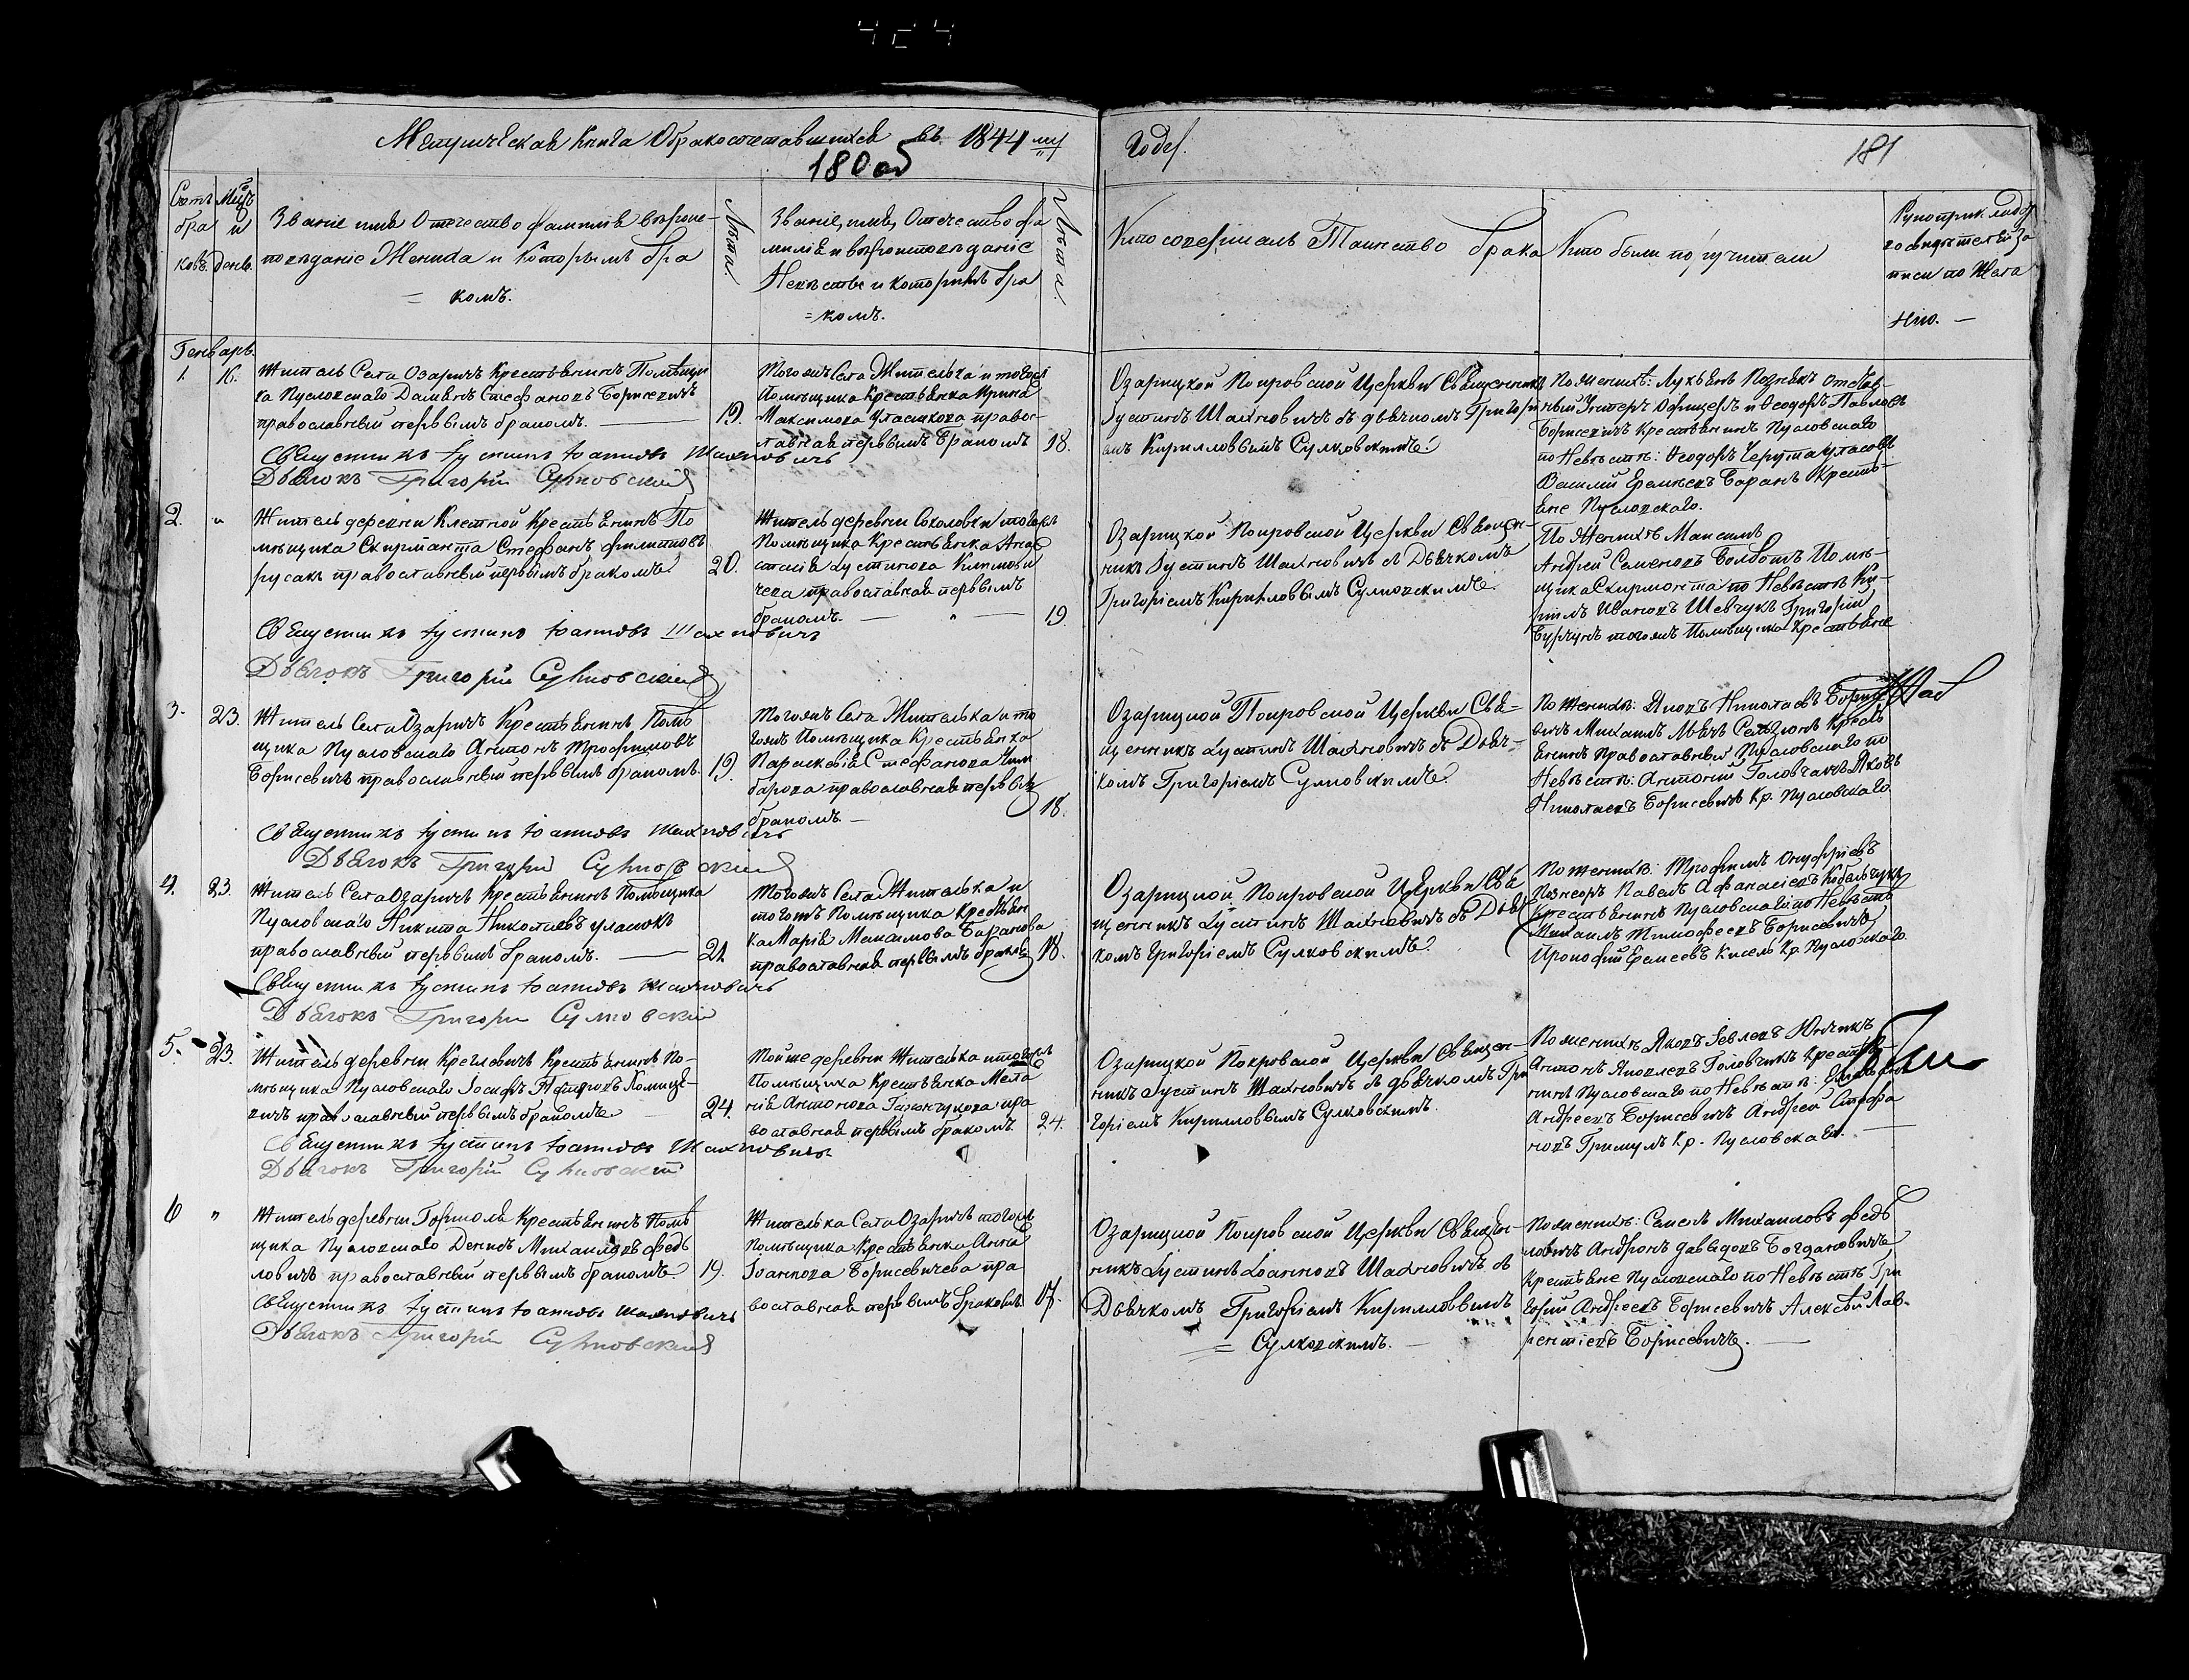 Метрическая Книга О бракосочетавшихся въ 1844 мъ
Годѣ.
180 об
181
Счотъ браковъ.
Мцъ и День.
Званіе имя Отечество фамилія вѣроисповѣданіе Жениха и Которымъ бракомъ.
Лѣта.
Званіе, имя, Отечество фамилія и вѣроисповѣданіе Невѣсты и которымъ бракомъ.
Лѣта.
Кто совершалъ Таинство брака
Кто были поручители
Рукоприкладство свидѣтелей записи по Желанію. —
Генварь.
1. 16.
Житель Села Озаричъ Крестьянинъ Помѣщи
ка Пусловскаго Даміанъ Стефановъ Борисевичъ
православный первымъ бракомъ. — 19.
Священникъ Іустинъ Іоанновъ Шахновичъ
Дьячокъ Григорій Сулковскій
Тогожъ Села Жителька и тогожъ
Помѣщика Крестьянка Ирина
Максимова Уласикова правос-
лавная первымъ бракомъ 18.
Озарицкой Покровской Церкви Священникъ
Іустинъ Шахновичъ съ дьячкомъ Григорі
емъ Кирилловымъ Сулковскимъ.
По женихѣ: Лукьянъ Познякъ отстав-
ный Унтеръ Офицеръ и Ѳеодоръ Павловъ
Борисевичъ Крестьянинъ Пусловскаго
по Невѣстѣ: Ѳеодоръ
Василій Еремѣевъ Баранъ Кресть-
яне Пусловскаго.
2. "
Житель деревни Клетной Крестьянинъ По
мѣщика Скирмонта Стефанъ Филиповъ
русакъ православный первымъ бракомъ. 20.
Священникъ Іустинъ Іоанновъ Шахновичъ
Дьячокъ Григорій Сулковскій
Житель деревни Соколовки тогожъ
Помѣщика Крестьянка Ана
стасія Іустинова Климови
чева православная первымъ
бракомъ. — " — 19.
Озарицкой Покровской Церкви Священ-
никъ Іустинъ Шахновичъ съ Дьячкомъ
Григоріемъ Кирилловымъ Сулковскимъ.
По Женихѣ Максимъ
Андрей Семеновъ Болботъ Помѣ-
щика Скирмонта по Невѣстѣ Ки-
рилъ Ивановъ Шевчукъ Григорій
тогожъ Помѣщика Крестьяне
3. 23.
Житель Села Озаричъ Крестьянинъ Помѣ
щика Пусловскаго Антонъ Трофимовъ
Борисевичъ православный первымъ бракомъ. 19.
Священникъ Іустинъ Іоанновъ Шахновичъ
Дьячокъ Григорій Сулковскій
Тогожъ Села Жителька и то
гожъ Помѣщика Крестьянка
Параскевія Стефанова
православная первымъ
бракомъ — 18.
Озарицкой Покровской Церкви Свя-
щенникъ Іустинъ Шахновичъ съ Дьяч-
комъ Григоріемъ Сулковскимъ.
По Женихѣ: Яковъ Николаевъ Борисе
вичъ Михаилъ Кресть
янинъ православный Пусловскаго по
Невѣстѣ: Антоній Головчакъ Яковъ
Николаевъ Борисевичъ Кр. Пусловскаго
4. 23
Житель Села Озаричъ Крестьянинъ Помѣщика
Пусловскаго Никита Николаевъ уласюкъ
православный первымъ бракомъ. — 21
Священникъ Іустинъ Іоанновъ Шахновичъ
Дьячокъ Григорій Сулковскій
Тогожъ Села Жителька и
тогожъ Помѣщика Крестьян
ка Марія Максимова Баранова
православная первымъ бракомъ 18.
Озарицкой Покровской Церкви Свя
щенникъ Іустинъ Шахновичъ съ Дьяч
комъ Григоріемъ Сулковскимъ
По женихѣ: Трофимъ Онуфріевъ
Павелъ Афанасіевъ
Крестьянинъ Пусловскаго по Невѣстѣ
Михаилъ Тимофеевъ Борисевичъ
Прокофій Еремеевъ Кисель Кр. Пусловскаго
5. 23.
Житель деревни Креглевичъ Крестьянинъ По-
мѣщика Пусловскаго Іосифъ
православный первымъ бракомъ. 24.
Священникъ Іустинъ Іоанновъ Шахновичъ
Дьячокъ Григорій Сулковскій
Тойже деревни Жителька и тогожъ
Помѣщика Крестьянка Мела
нія Антонова пра
вославная первымъ бракомъ 24.
Озарицкой Покровской Церкви Священ-
никъ Іустинъ Шахновичъ съ дьячкомъ Гри
горіемъ Кирилловымъ Сулковскимъ.
По женихѣ Яковъ Іевлевъ
Антонъ Яковлевъ Головчикъ Крестья-
нинъ Пусловскаго по Невѣстѣ:
Андреевъ Борисевичъ Андрей Стефа
новъ Кр. Пусловскаго. —
6 "
Житель деревни Горполь Крестьянинъ Помѣ
щика Пусловскаго Денисъ Михаиловъ Федь
ковичъ православный первымъ бракомъ. 19.
Священникъ Іустинъ Іоанновъ Шахновичъ
Дьячокъ Григорій Сулковскій
Жителька Села Озаричъ тогожъ
Помѣщика Крестьянка Анна
Іоаннова Борисевичева пра
вославная первымъ бракомъ 17.
Озарицкой Покровской Церкви Священ-
никъ Іустинъ Іоанновъ Шахновичъ съ
Дьячкомъ Григоріемъ Кирилловымъ
= Сулковскимъ. —
По женихѣ: Михаиловъ Федь
ковичъ Андронъ Давыдовъ Богдановичъ
Крестьяне Пусловскаго по Невѣстѣ Гри
горій Андреевъ Борисевичъ Алексѣй Лав-
рентіевъ Борисевичъ. —